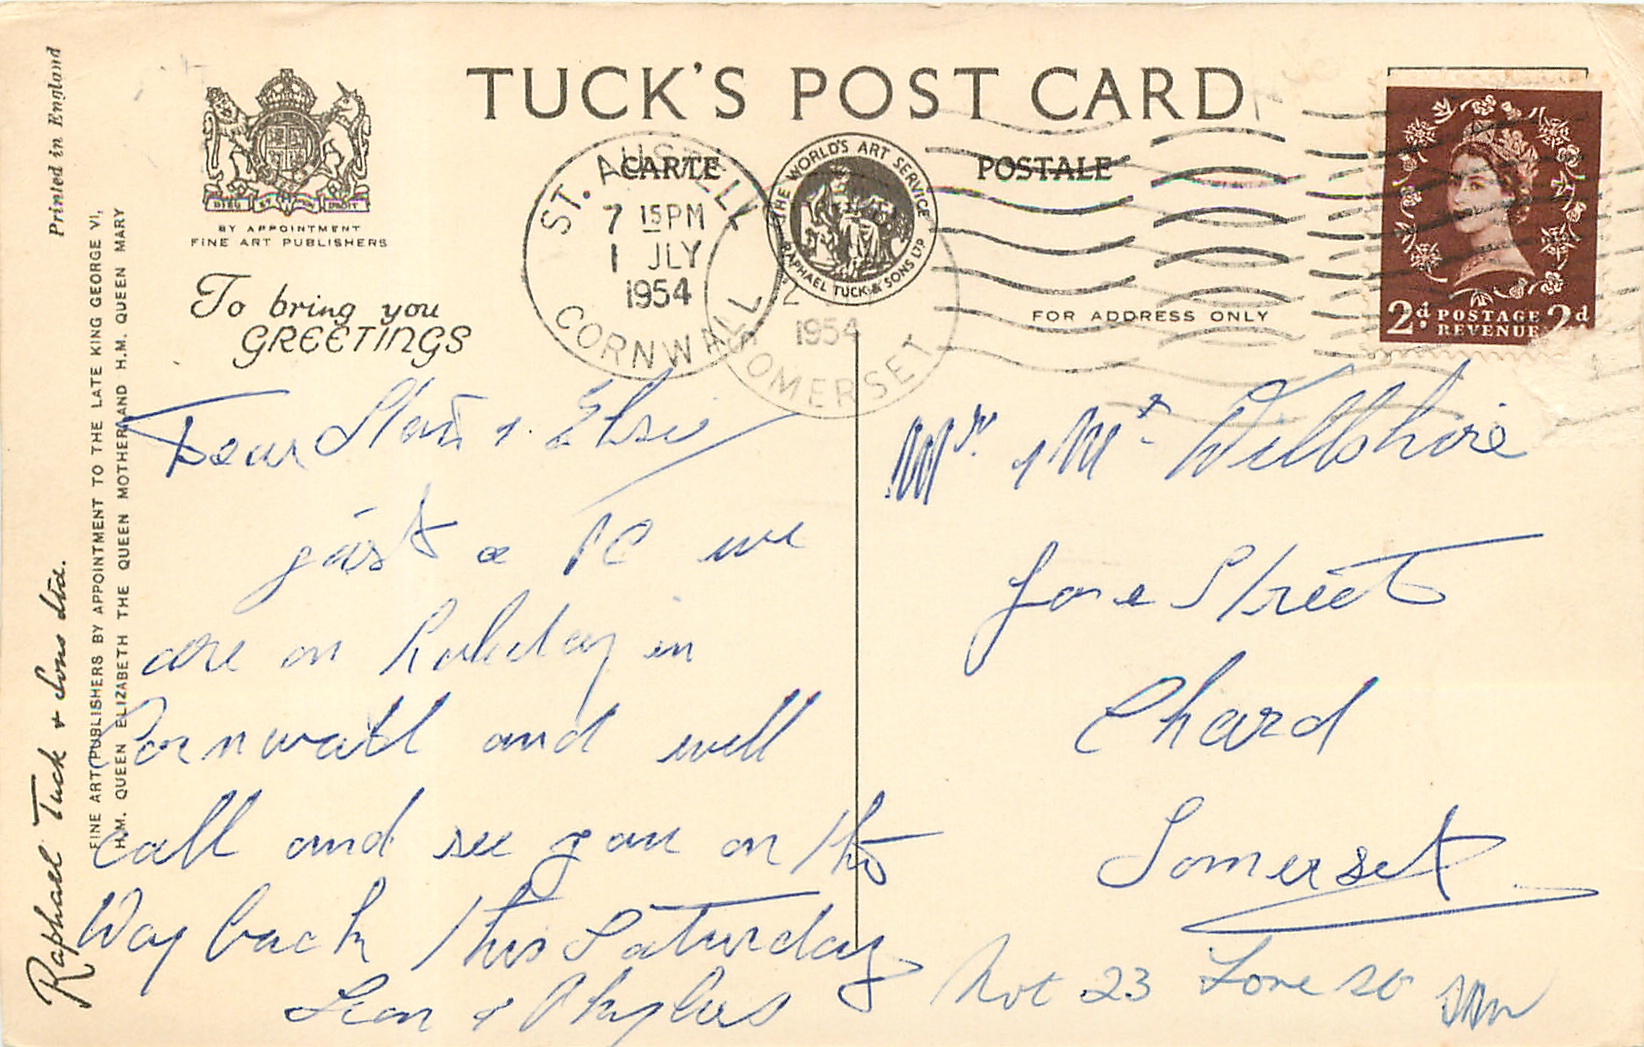 TUCK'S POST CARD
CARTE POSTALE
THE WORLD'S ART SERVICE
RAPHAEL TUCK & SONS LTD
BY APPOINTMENT
FINE ART PUBLISHERS
To bring you
GREETINGS
ST. AUSTELL
7 15 PM
1 JLY
1954
CORNWALL
2
1954
SOMERSET
FOR ADDRESS ONLY
2d POSTAGE REVENUE 2d
Printed in England
FINE ART PUBLISHERS BY APPOINTMENT TO THE LATE KING GEORGE VI,
H.M. QUEEN ELIZABETH THE QUEEN MOTHER AND H.M. QUEEN MARY
Raphael Tuck & Sons Ltd.
Dear Stan & Elsie
just a PC we
are on holiday in
Cornwall and will
call and see you on the
Way back this Saturday
& Phyllis
Mr & Mrs Willshire
Fore Street
Chard
Somerset
Not 23 Fore St